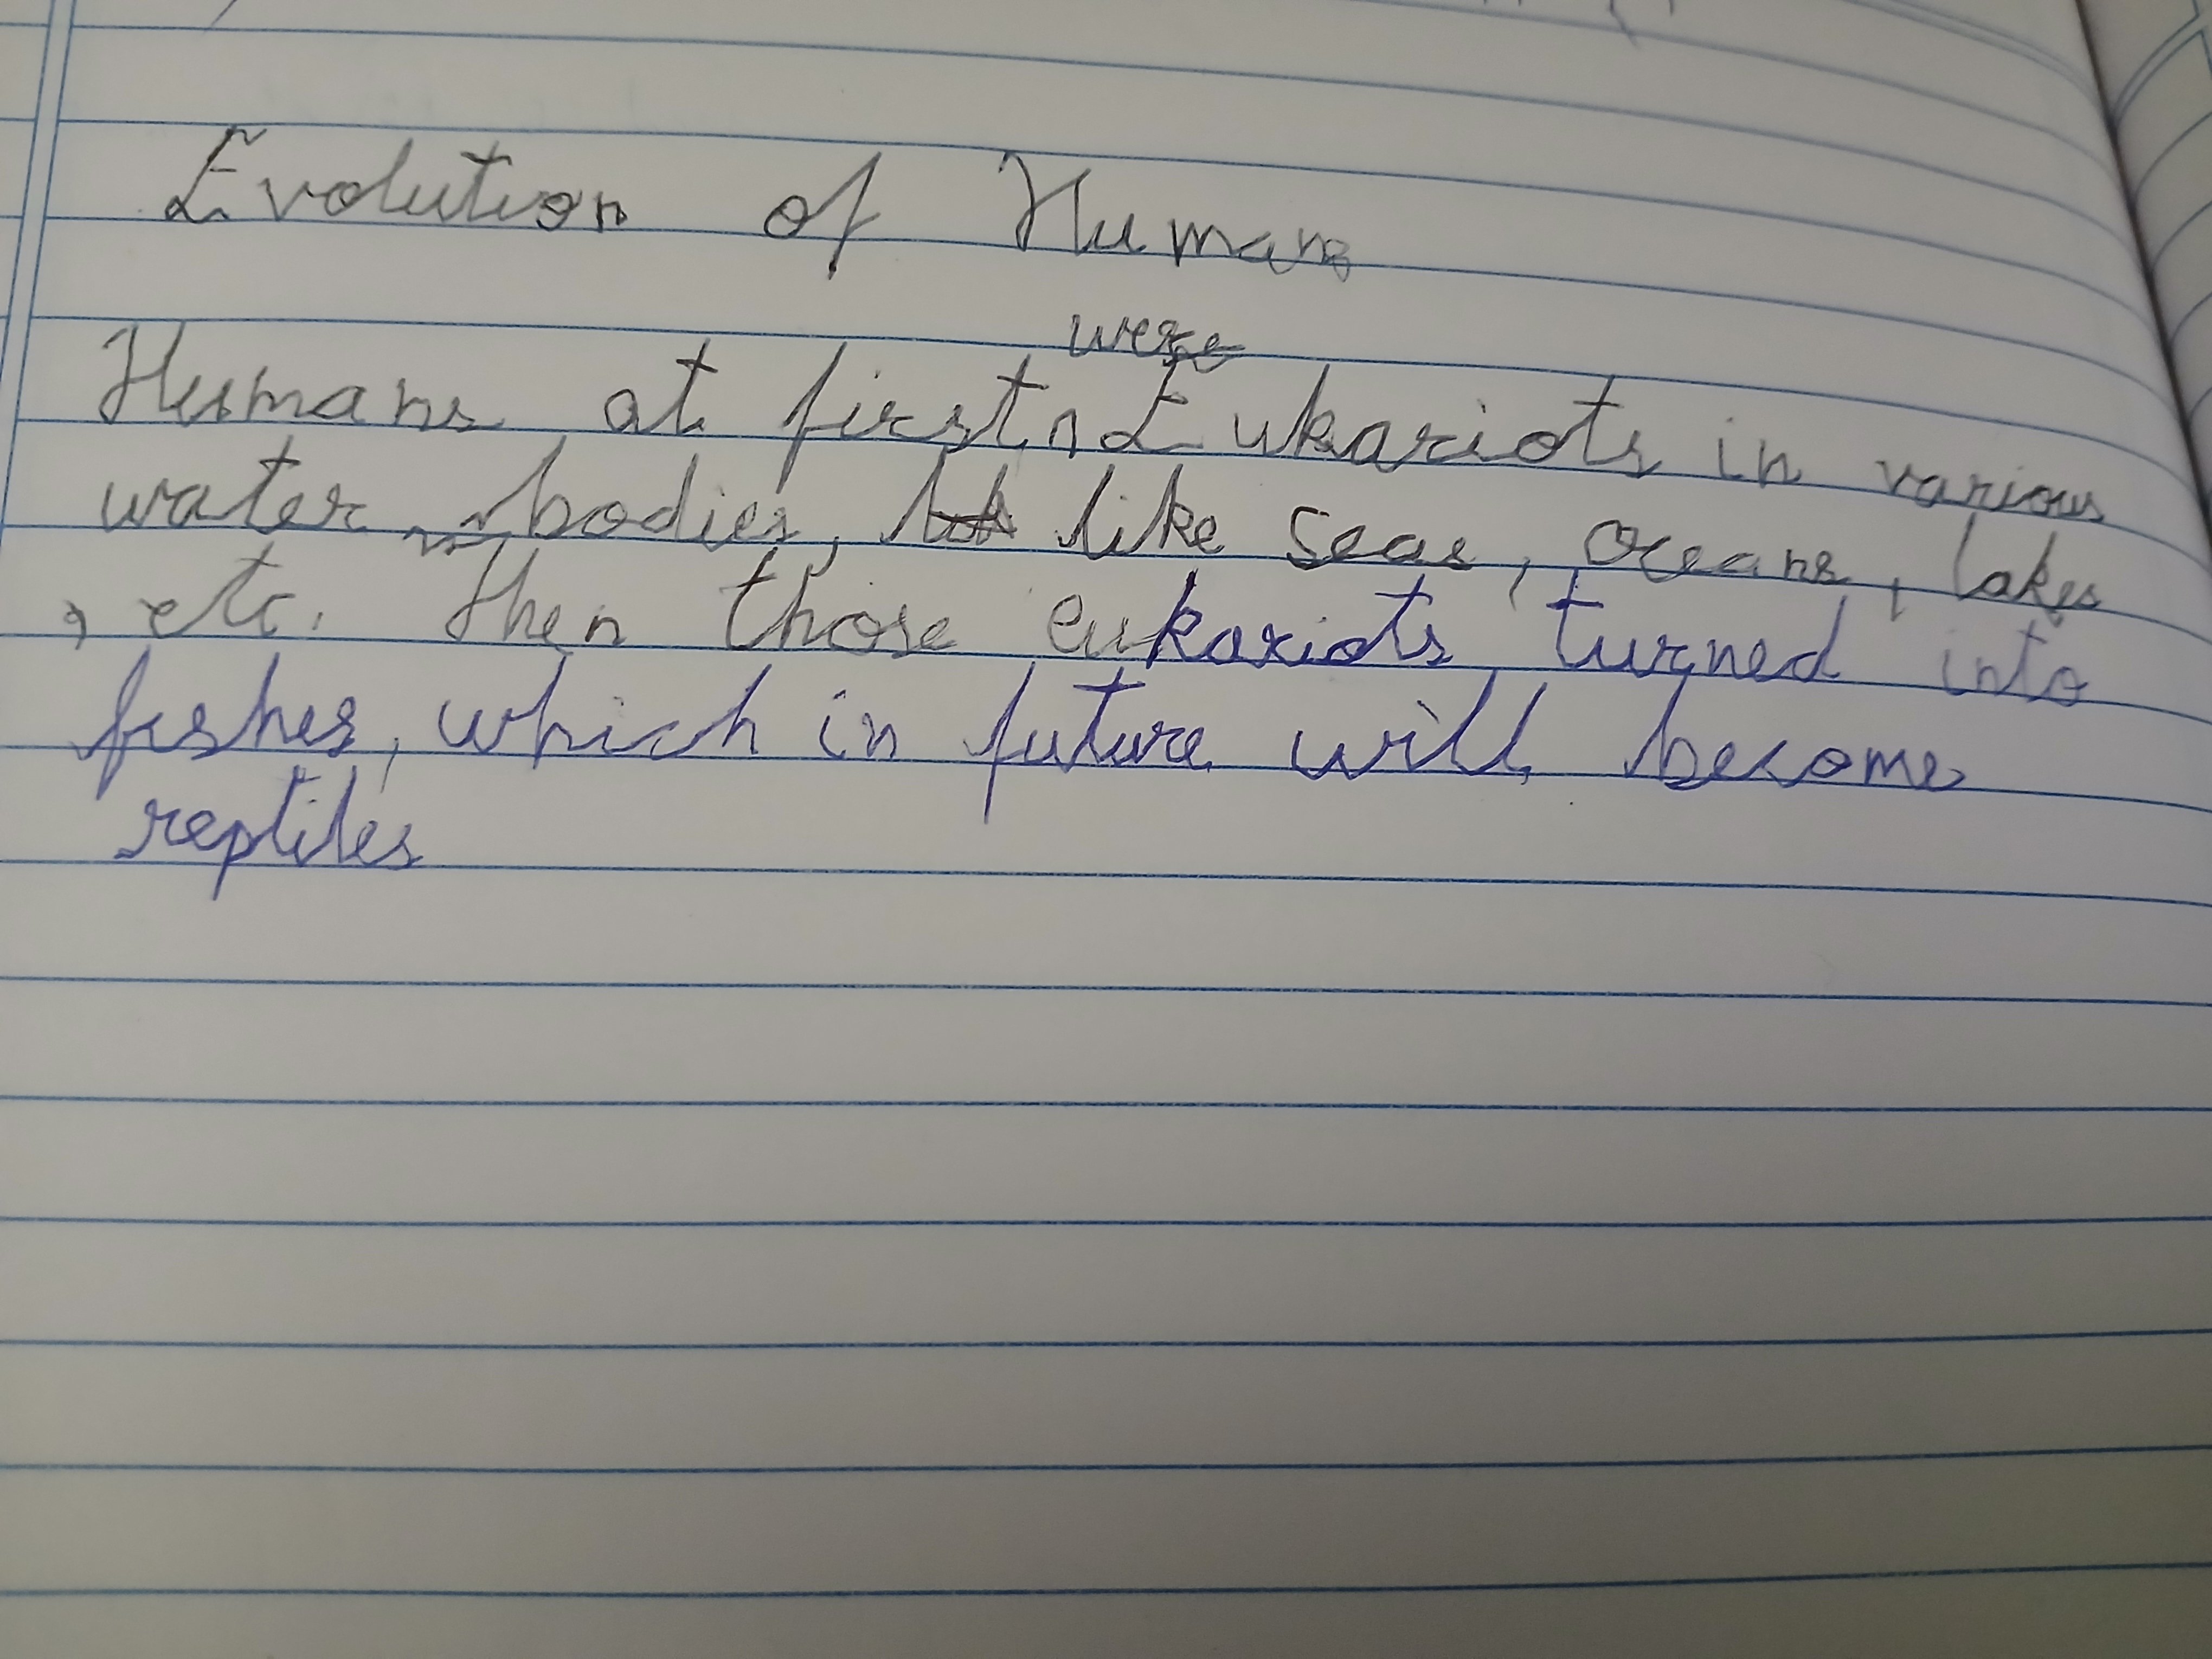 Evolution of Humans
were
Humans at first ^ Eukariots in various
water bodies, like seas, oceans, lakes
, etc. Then those eukariots turned into
fishes, which in future will become
reptiles